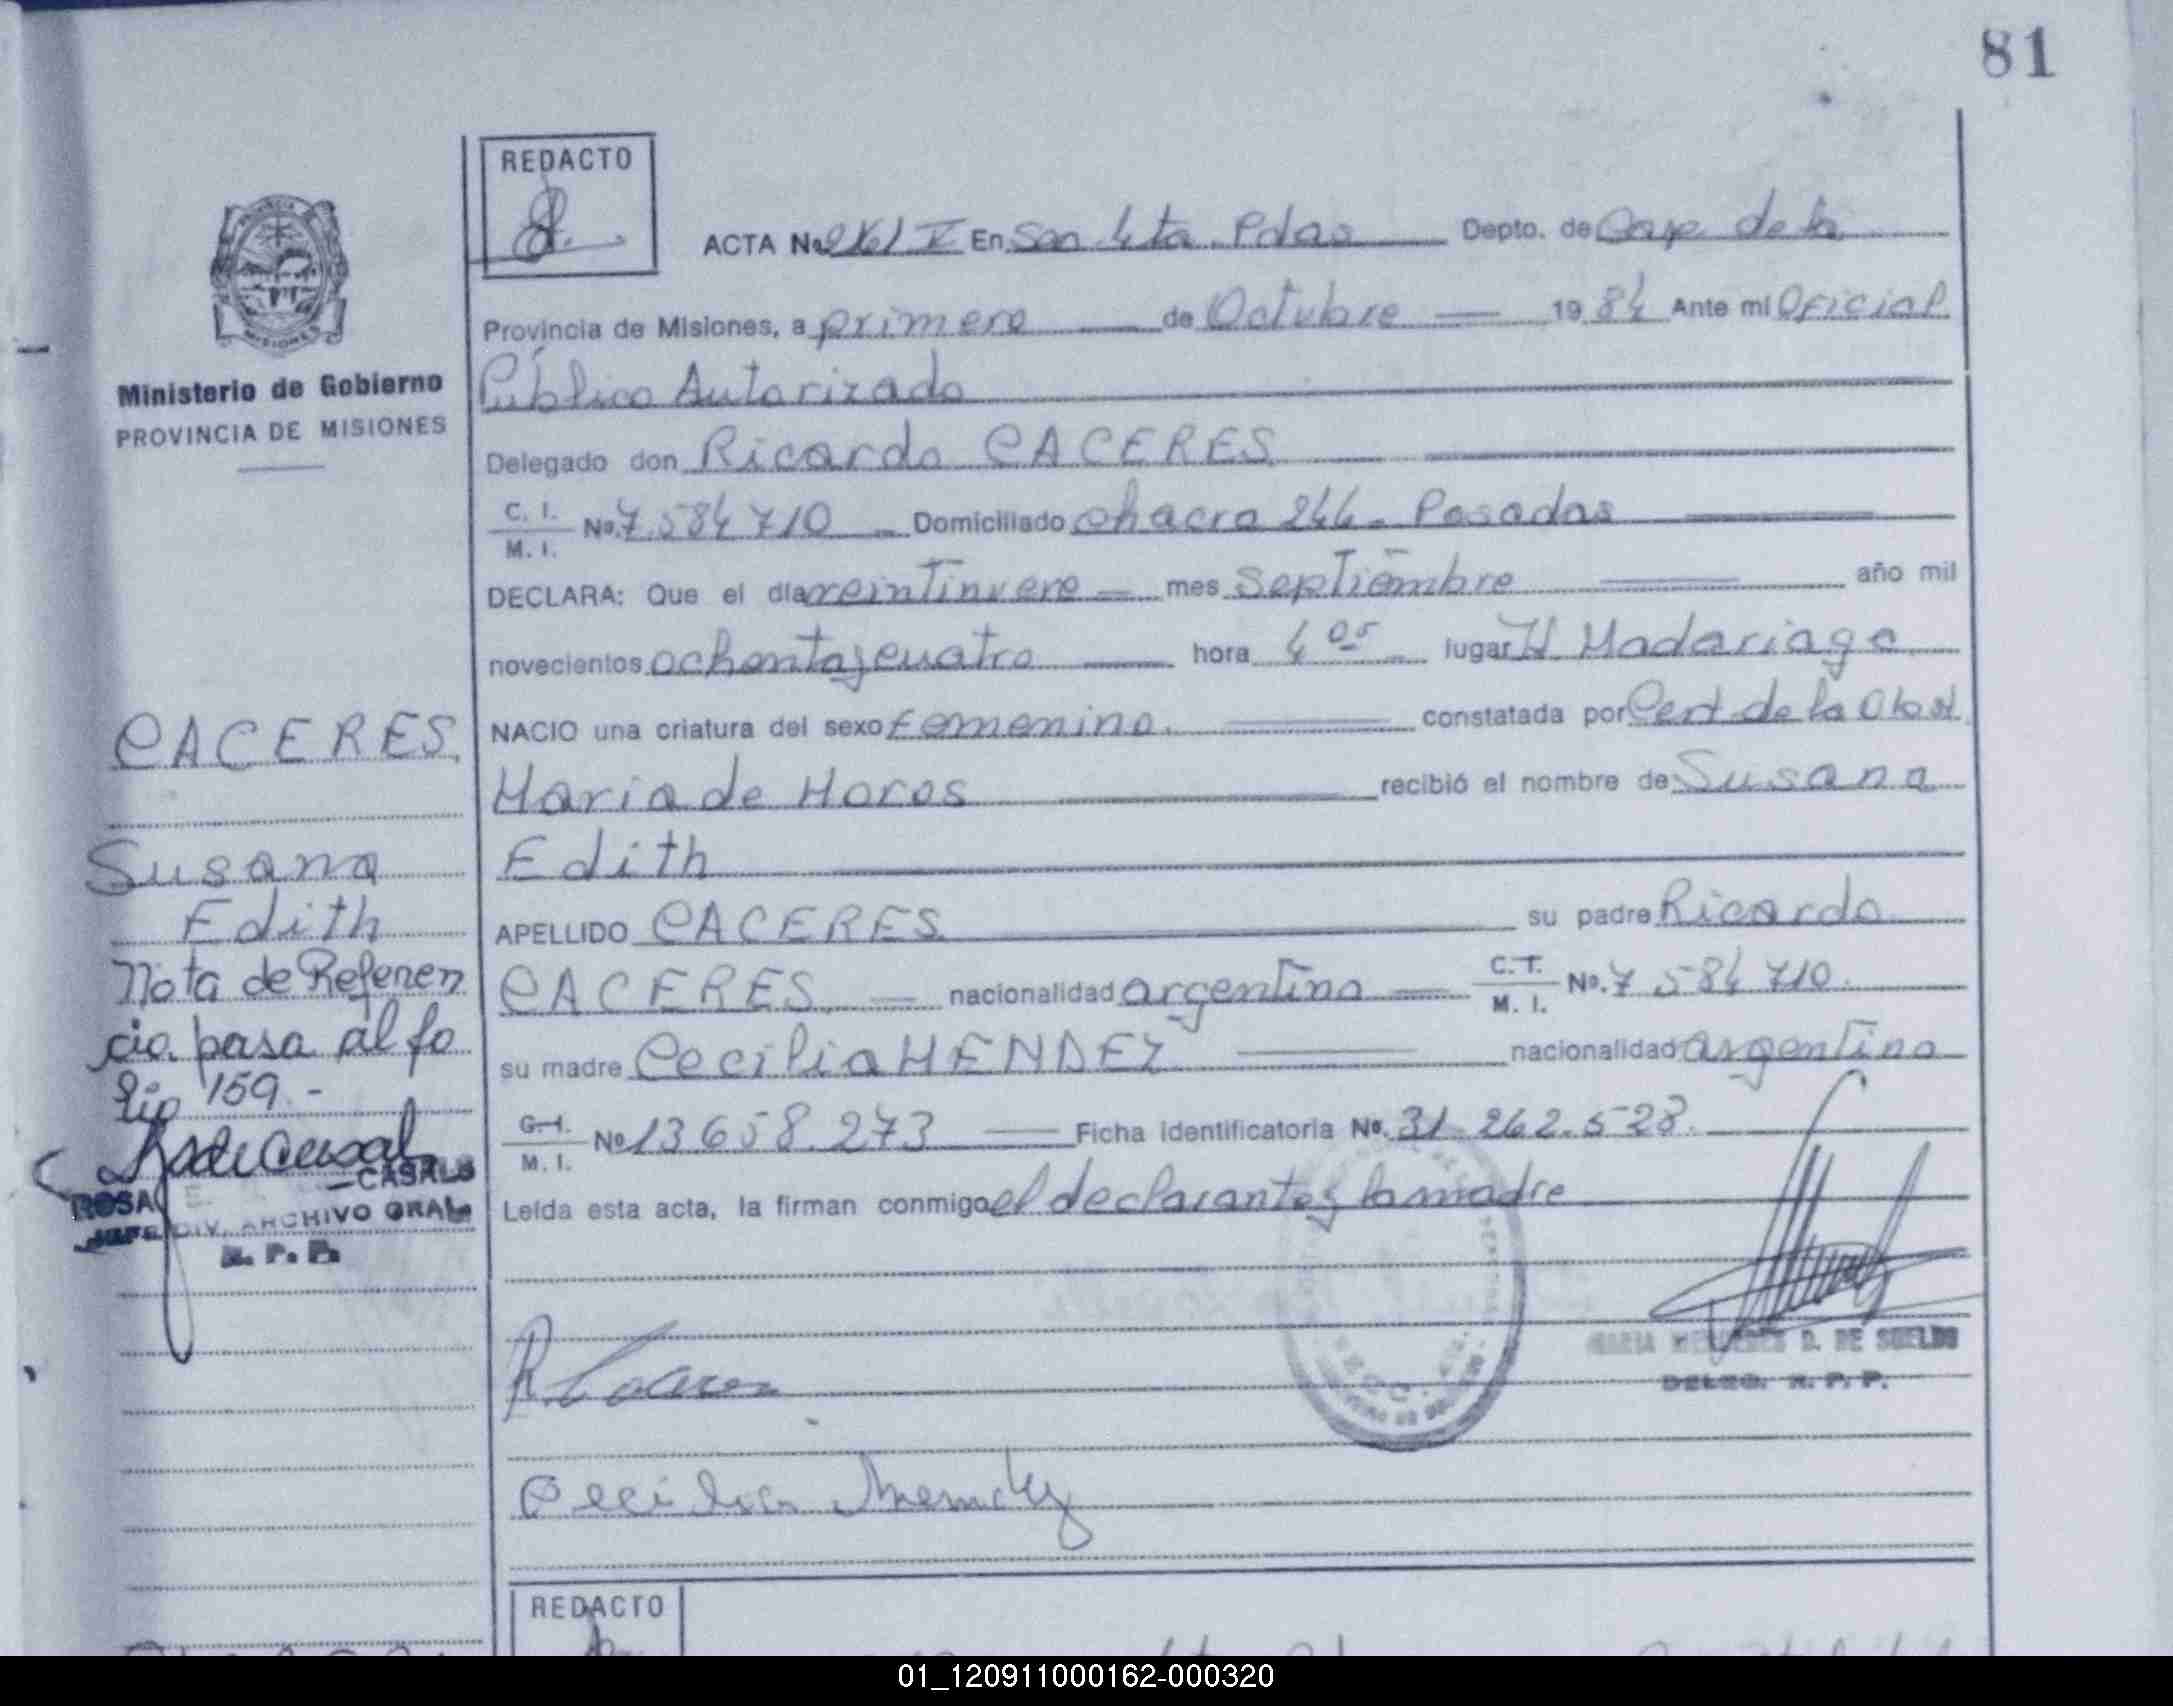 81
REDACTO
ACTA No. En San Lta Pdas Depto. de Cap de la
Provincia de Misiones, a primero de Octubre 1984 Ante mi Oficial
Público Autorizado
Delegado don Ricardo CACERES
C. I. M. I. No. 7.584 710 Domiciliado chacra 244 - Posadas
DECLARA: Que el día mes Septiembre año mil
novecientos ochentaycuatro hora 4 05 lugar H Madariaga
NACIO una criatura del sexo femenino. constatada por Cert. de la Obst.
Maria de recibió el nombre de Susana
Edith
APELLIDO CACERES su padre Ricardo
CACERES nacionalidad argentina C. I. M. I. No. 7 584 710.
su madre Cecilia MENDEZ nacionalidad argentina
C. I. M. I. No 13 658.273 Ficha identificatoria No. 31.262.528.
Leída esta acta, la firman conmigo el declarante y la madre
R. Caceres
MARIA D. DE SUELDO
DELEG. R. P. P.
Cecilia Mendez
PROVINCIA DE
MISIONES
Ministerio de Gobierno
PROVINCIA DE MISIONES
CACERES,
Susana
Edith
Nota de Referen
cia. pasa al fo
lio 159.-
ROSA CASALS
JEFE DIV. ARCHIVO GRAL.
R. P. P.
REDACTO
01_120911000162-000320